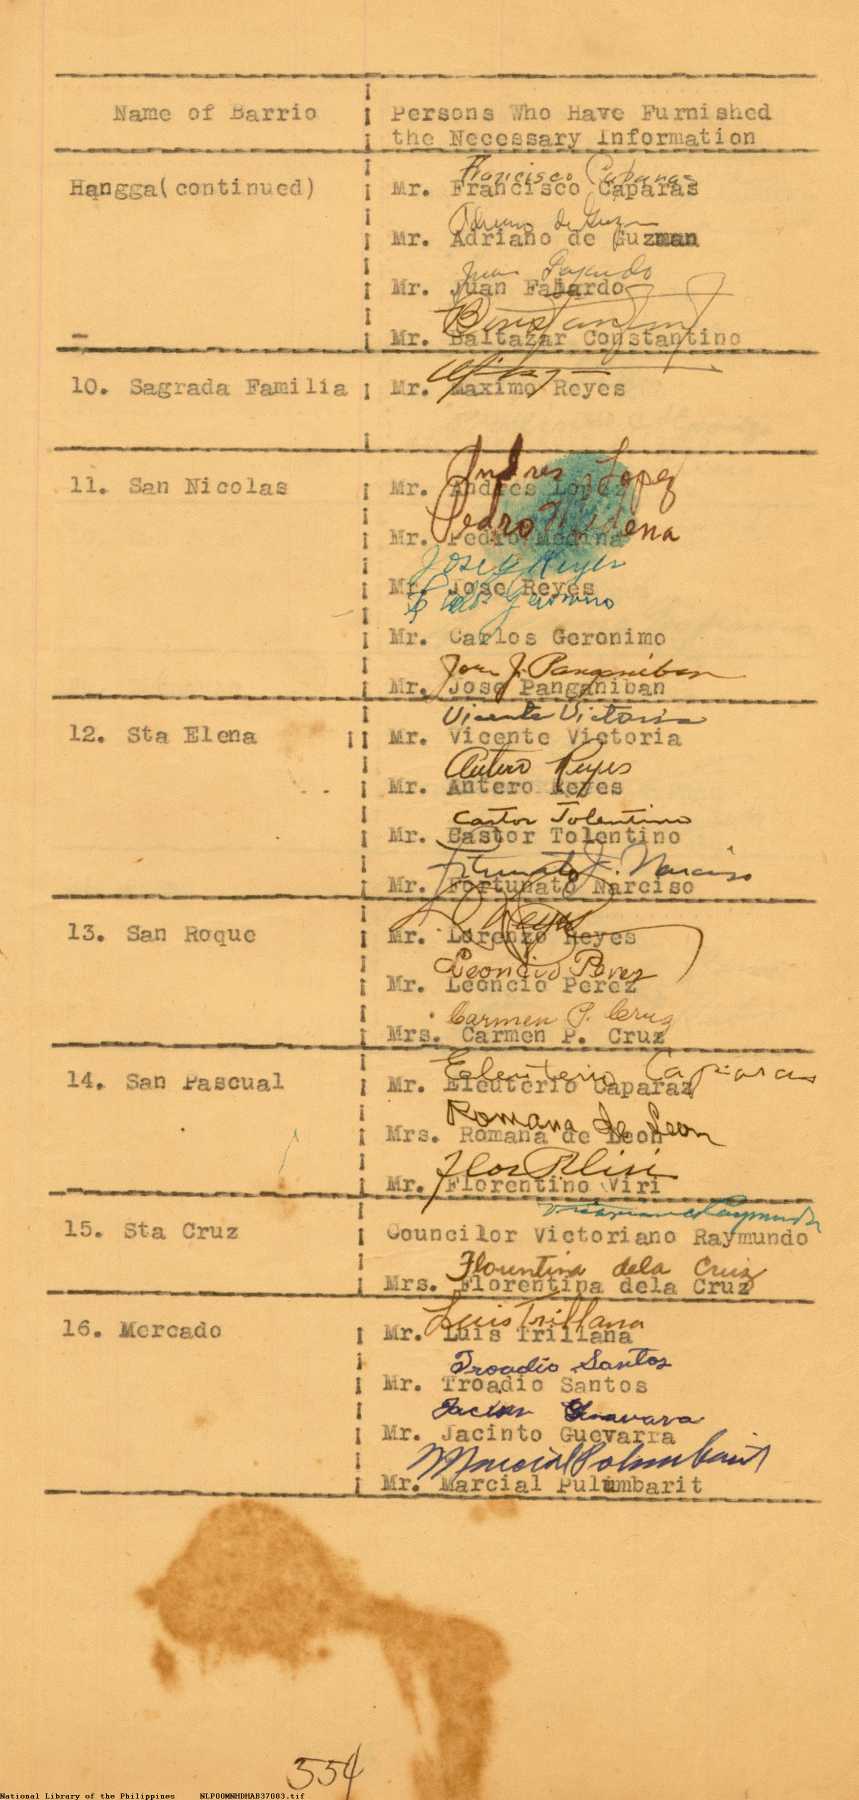 Name of Barrio
Persons Who Have Furnished
the Necessary Information
Hangga(continued)
Francisco Caparas
Mr. Francisco Caparas
Adriano de Guzman
Mr. Adriano de Guzman
Juan Fajardo
Mr. Juan Fajardo
Mr. Baltazar Constantino
10. Sagrada Familia
Mr. Maximo Reyes
11. San Nicolas
Andres Lopez
Mr. Andres Lopez
Pedro Medena
Mr. Pedro Medina
Jose Reyes
Mr. Jose Reyes
Carlos Geronimo
Mr. Carlos Geronimo
Jose J. Panganiban
Mr. Jose Panganiban
12. Sta Elena
Vicente Victoria
Mr. Vicente Victoria
Antero Reyes
Mr. Antero Reyes
Castor Tolentino
Mr. Castor Tolentino
Fortunato J. Narciso
Mr. Fortunato Narciso
13. San Roque
L. Reyes
Mr. Lorenzo Reyes
Leoncio Perez
Mr. Leoncio Perez
Carmen P. Cruz
Mrs. Carmen P. Cruz
14. San Pascual
Eleuterio Caparas
Mr. Eleuterio Caparaz
Romana de Leon
Mrs. Romana de Leon
Flor Viri
Mr. Florentino Viri
15. Sta Cruz
Victoriano Raymundo
Councilor Victoriano Raymundo
Florentina dela Cruz
Mrs. Florentina dela Cruz
16. Mercado
Luis Trillana
Mr. Luis Trillana
Troadio Santos
Mr. Troadio Santos
Jacinto Guevara
Mr. Jacinto Guevarra
Marcial Polumbarit
Mr. Marcial Pulumbarit
554
National Library of the Philippines NLPOOMNHDHAB37003.tif